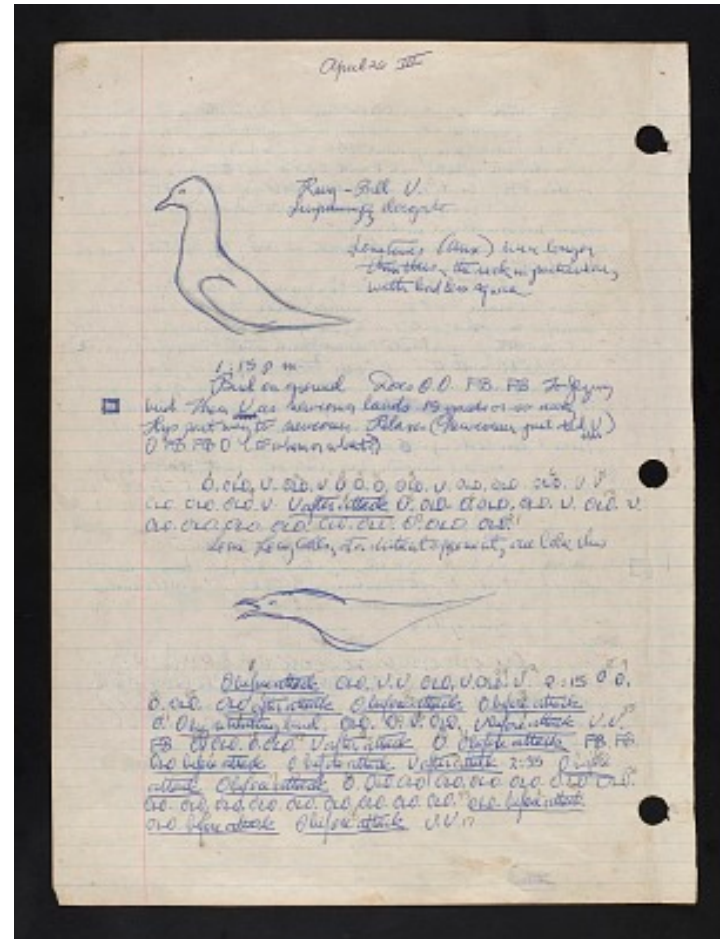 April 26 III
Ring-Bill V.
Surprisingly
Sometimes (Aux) even longer
than this, the neck in particular,
with head less square.
1:15 p m.
Bird on ground Does O.O. FB. FB. To flying
bird Then V as newcomer lands 15 yards or so
Flys part way to newcomer. Relaxes (Newcomer just did V)
O FB. FB O (
O. OLO, V. OLO. V O O. O, OLO. V. OLO, OLO. OLO. V. V.
OLO. OLO. OLO. V. V after attack O. OLO. OLO, OLO. V. OLO. V.
OLO. OLO. OLO. OLO. OLO. OLO. O. OLO. OLO.
Some Long Calls, at distant opponent, are like this
O before attack OLO. V.V. OLO, V.OLO. V. 2:15 O O.
O. OLO. OLO after attack O before attack O before attack
O. O by retreating bird. OLO. O. V. OLO. V before attack V.V.
FB O OLO. O.OLO. V after attack O O before attack FB. FB.
OLO before attack O before attack V after attack 2:35 O before
attack O before attack O. O.OLO. OLO. OLO. OLO. OLO. OLO.
OLO. OLO, OLO. OLO. OLO. OLO. OLO. OLO. OLO. before attack.
OLO. before attack O before attack V.V.